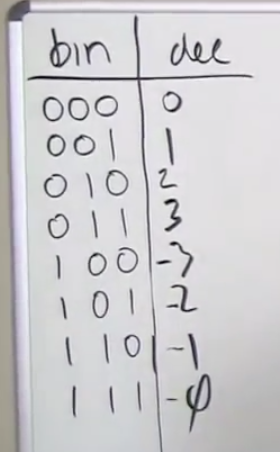 bin dec
000 0
001 1
010 2
011 3
100 -3
101 -2
110 -1
111 -φ